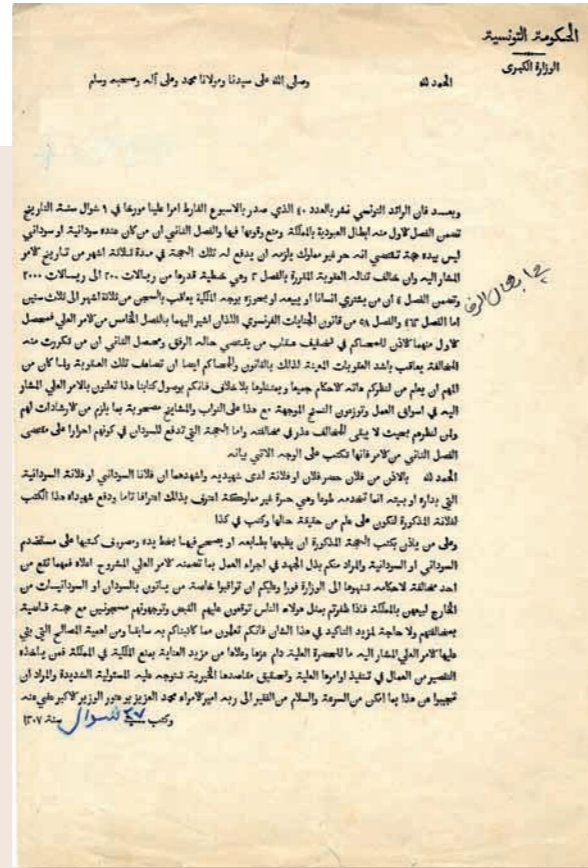 الحكومة التونسية
الوزارة الكبرى
الحمد لله وصلى الله على سيدنا ومولانا محمد وعلى آله وصحبه وسلم
وبعد فان الرائد التونسي نشر بالعدد ٤٠ الذي صدر بالاسبوع الفارط امرا عليا مورخا في ١ شوال سنة التاريخ
تضمن الفصل الاول منه ابطال العبودية بالمملكة ومنع وقوعها فيها والفصل الثاني ان من كان عنده سودانية او سوداني
ليس بيده حجة تقتضي انه حر غير مملوك يلزمه ان يدفع له تلك الحجة في مدة ثلاثة اشهر من تاريخ الامر
المشار اليه وان خالف تناله العقوبة المقررة بالفصل ٣ وهي خطية قدرها من ريالات ٢٠٠ الى ريالات ٢٠٠٠
وتضمن الفصل ٤ ان من يشتري انسانا او يبيعه او يحوزه بوجه الملكية يعاقب بالسجن من ثلاثة اشهر الى ثلث سنين
اما الفصل ٤٦٣ والفصل ٥٨ من قانون الجنايات الفرنسوي اللذان اشير اليهما بالفصل الخامس من الامر العلي فمحصل
الاول منهما الاذن للحاكم في تخفيف عقاب من يقتضي حاله الرفق ومحصل الثاني ان من تكررت منه
المخالفة يعاقب باشد العقوبات المعينة لذلك بالقانون وللحاكم ايضا ان تضاعف تلك العقوبة ولما كان من
المهم ان يعلم من لنظركم هاته الاحكام جميعا ويمتثلوها بلا خلاف فانكم بوصول كتابنا هذا تعلنون بالامر العلي المشار
اليه في اسواق العمل وتوزعون النسخ الموجهة مع هذا على النواب والمشايخ مصحوبة بما يلزم من الارشادات لهم
ولمن لنظرهم بحيث لا يبقى للمخالف عذر في مخالفته واما الحجة التي تدفع للسودان في كونهم احرارا على مقتضى
الفصل الثاني من الامر فانها تكتب على الوجه الاتي بيانه
الحمد لله بالاذن من فلان حضر فلان او فلانة لدى شهيديه واشهدهما ان فلانا السوداني او فلانة السودانية
التي بداره او ببيته انما تخدمه طوعا وهي حرة غير مملوكة اعترف بذلك اعترافا تاما ودفع شهيداه هذا الكتب
لفلانة المذكورة لتكون على علم من حقيقة حالها وكتب في كذا
وعلى من ياذن بكتب الحجة المذكورة ان يطبعها بطابعه او يصحح فيها بخط يده ومصروف كتبها على مستخدم
السوداني او السودانية والمراد منكم بذل الجهد في اجراء العمل بما تضمنه الامر العلي المشروح اعلاه فمهما تقع من
احد مخالفة لاحكامه تنهوها الى الوزارة فورا وعليكم ان تراقبوا خاصة من ياتون بالسودان او السودانيات من
الخارج لبيعهن بالمملكة فاذا ظفرتم بمثل هولاء الناس توقعون عليهم القبض وتوجهونهم مسجونين مع حجة قاضية
بمخالفتهم ولا حاجة لمزيد التاكيد في هذا الشان فانكم تعلمون مما كاتبناكم به سابقا ومن اهمية المصالح التي بني
عليها الامر العلي المشار اليه ما للحضرة العلية دام عزها وعلاها من مزيد العناية بمنع الملكية في المملكة فمن ياخذه
التقصير من العمال في تنفيذ اوامرها العلية وتحقيق مقاصدها الخيرية تتوجه عليه المسئولية الشديدة والمراد ان
تجيبوا عن هذا بما امكن من السرعة والسلام من الفقير الى ربه امير الامراء محمد العزيز بوعتور الوزير الاكبر عفي عنه
وكتب في ٢٧ شوال سنة ١٣٠٧